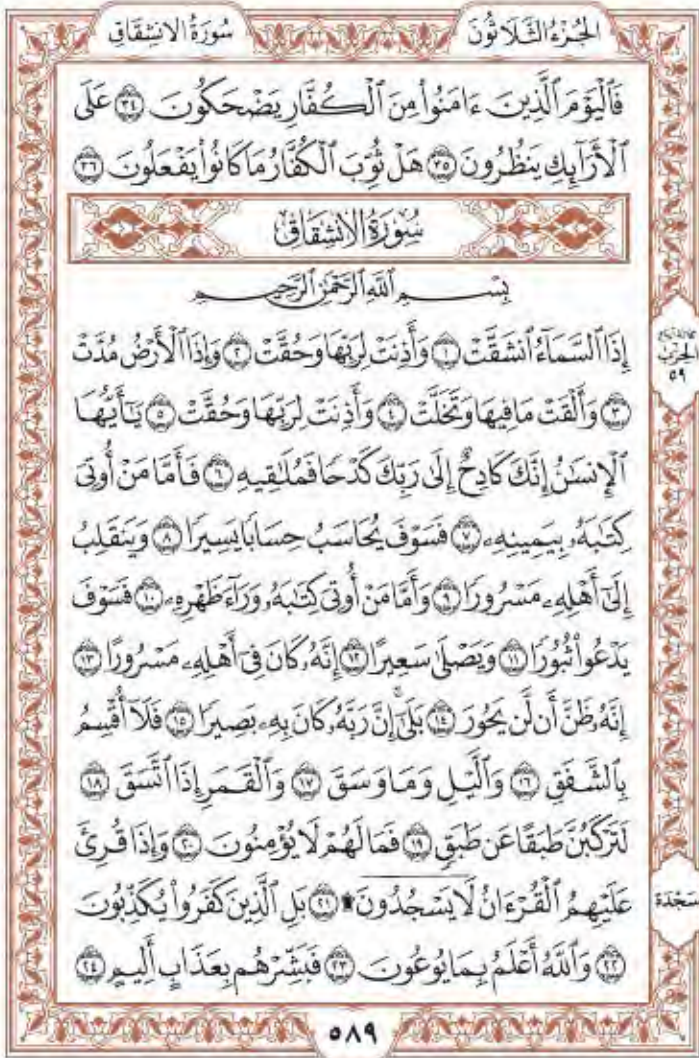 سُورَةُ الانشِقَاقِ
الجُزْءُ الثَّلَاثُونَ
فَٱلْيَوْمَ ٱلَّذِينَ ءَامَنُوا۟ مِنَ ٱلْكُفَّارِ يَضْحَكُونَ ٣٤ عَلَى
ٱلْأَرَآئِكِ يَنظُرُونَ ٣٥ هَلْ ثُوِّبَ ٱلْكُفَّارُ مَا كَانُوا۟ يَفْعَلُونَ ٣٦
سُورَةُ الانشِقَاقِ
بِسْمِ ٱللَّهِ ٱلرَّحْمَٰنِ ٱلرَّحِيمِ
إِذَا ٱلسَّمَآءُ ٱنشَقَّتْ ١ وَأَذِنَتْ لِرَبِّهَا وَحُقَّتْ ٢ وَإِذَا ٱلْأَرْضُ مُدَّتْ
٣ وَأَلْقَتْ مَا فِيهَا وَتَخَلَّتْ ٤ وَأَذِنَتْ لِرَبِّهَا وَحُقَّتْ ٥ يَٰٓأَيُّهَا
ٱلْإِنسَٰنُ إِنَّكَ كَادِحٌ إِلَىٰ رَبِّكَ كَدْحًا فَمُلَٰقِيهِ ٦ فَأَمَّا مَنْ أُوتِىَ
كِتَٰبَهُۥ بِيَمِينِهِۦ ٧ فَسَوْفَ يُحَاسَبُ حِسَابًا يَسِيرًا ٨ وَيَنقَلِبُ
إِلَىٰٓ أَهْلِهِۦ مَسْرُورًا ٩ وَأَمَّا مَنْ أُوتِىَ كِتَٰبَهُۥ وَرَآءَ ظَهْرِهِۦ ١٠ فَسَوْفَ
يَدْعُوا۟ ثُبُورًا ١١ وَيَصْلَىٰ سَعِيرًا ١٢ إِنَّهُۥ كَانَ فِىٓ أَهْلِهِۦ مَسْرُورًا ١٣
إِنَّهُۥ ظَنَّ أَن لَّن يَحُورَ ١٤ بَلَىٰٓۚ إِنَّ رَبَّهُۥ كَانَ بِهِۦ بَصِيرًا ١٥ فَلَآ أُقْسِمُ
بِٱلشَّفَقِ ١٦ وَٱلَّيْلِ وَمَا وَسَقَ ١٧ وَٱلْقَمَرِ إِذَا ٱتَّسَقَ ١٨
لَتَرْكَبُنَّ طَبَقًا عَن طَبَقٍ ١٩ فَمَا لَهُمْ لَا يُؤْمِنُونَ ٢٠ وَإِذَا قُرِئَ
عَلَيْهِمُ ٱلْقُرْءَانُ لَا يَسْجُدُونَ ۩ ٢١ بَلِ ٱلَّذِينَ كَفَرُوا۟ يُكَذِّبُونَ
٢٢ وَٱللَّهُ أَعْلَمُ بِمَا يُوعُونَ ٢٣ فَبَشِّرْهُم بِعَذَابٍ أَلِيمٍ ٢٤
الحِزْبُ
٥٩
سَجْدَة
٥٨٩